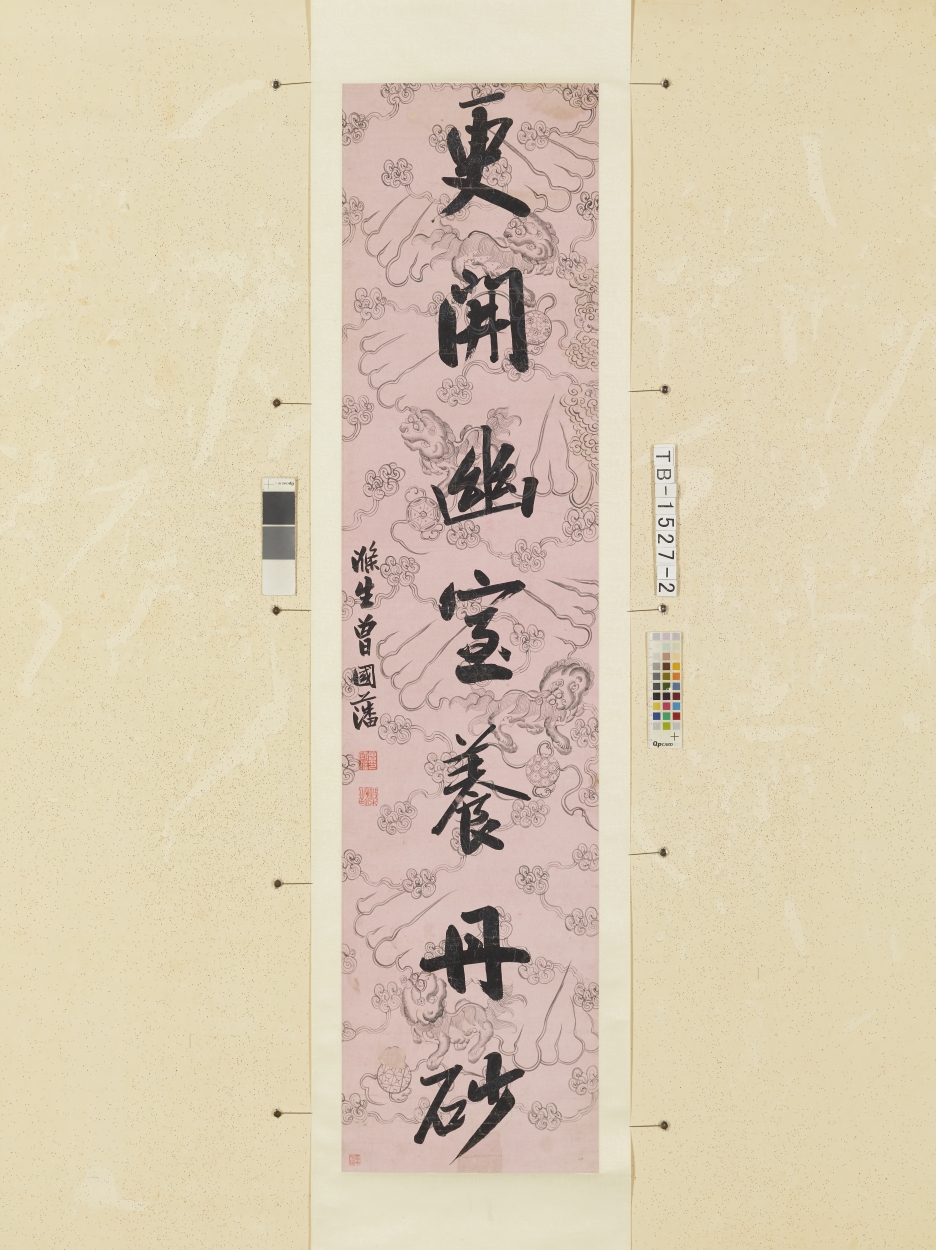 更開幽室養丹砂
滌生曾國藩
TB-1527-2
QpCARD